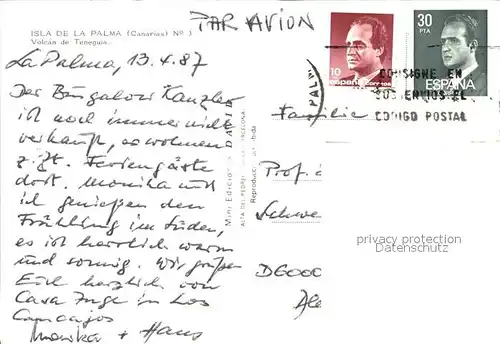 ISLA DE LA PALMA (Canarias) Nº
Volcán de Teneguía.
PAR AVION
La Palma, 13.4.87
Der Bungalow Kanzler
ist noch immer nicht
verkauft, so wohnen
z. Zt. Feriengäste
dort. Monika und
ich genießen den
Frühling im Süden,
es ist herrlich warm
und sonnig. Wir grüßen
Euch herzlich von
Casa Inge in Los
Cancajos
Monika + Hans
Mini Ediciones DAVID
BARCELONA
Reproducción
10
españa
30
PTA
ESPAÑA
CONSIGNE EN
SUS ENVIOS EL
CODIGO POSTAL
Familie
Prof.
Schwe
D6000
privacy protection
www.ansichtskartenversand.com